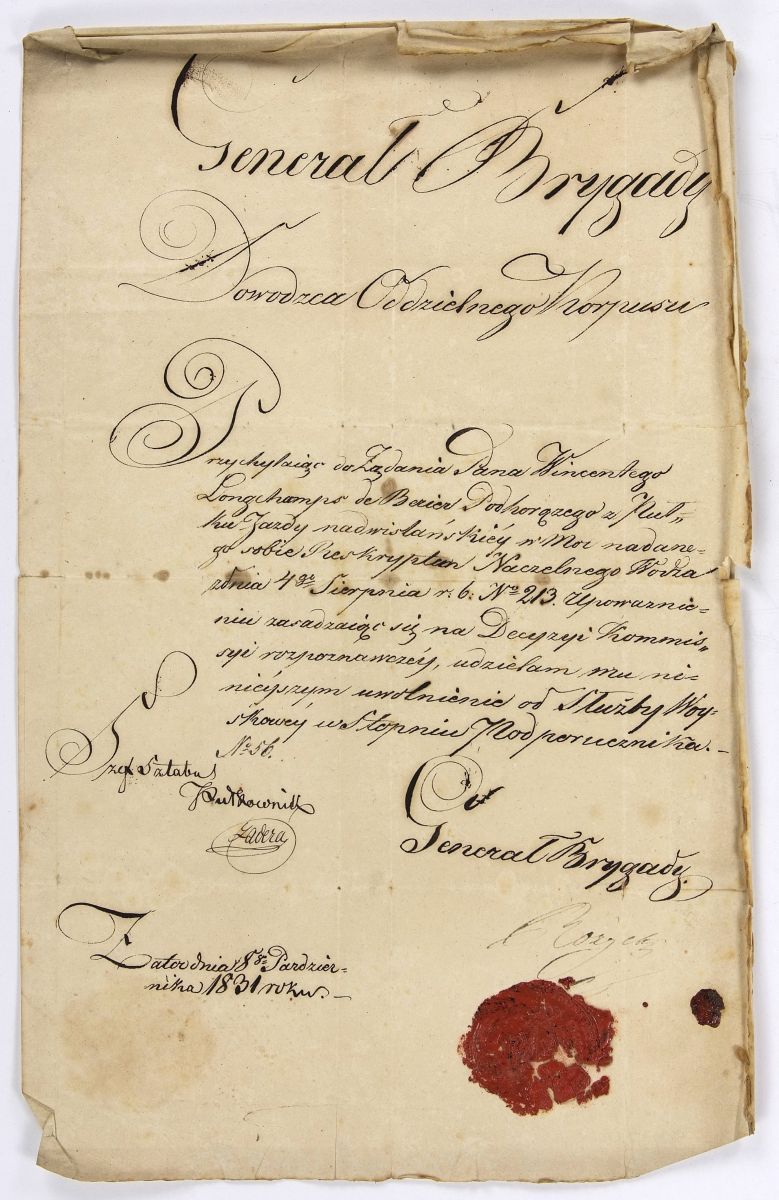 Generał Brygady
Dowodzca Oddzielnego Korpusu
Przychylaiąc do Żądania Pana Wincentego
Longchamps de Berier Podhorążego z Puł„
ku Jazdy nadwiślańskiéy w Moc nadane-
go sobie Reskryptem Naczelnego Wodza
zdnia 4go Sierpnia r. b. No 213. Upoważnie-
niu zasadzaiąc się na Decyzyi Kommis„
syi rozpoznawczéy, udzielam mu ni-
niéyszym uwolnienie od Służby Woy-
skowéy w Stopniu Podporucznika.-
No 56.
Szef Sztabu
Pułkownik
Zadera
Generał Brygady.
Różycki
Zator dnia 8go Paździer-
nika 1831 roku.-